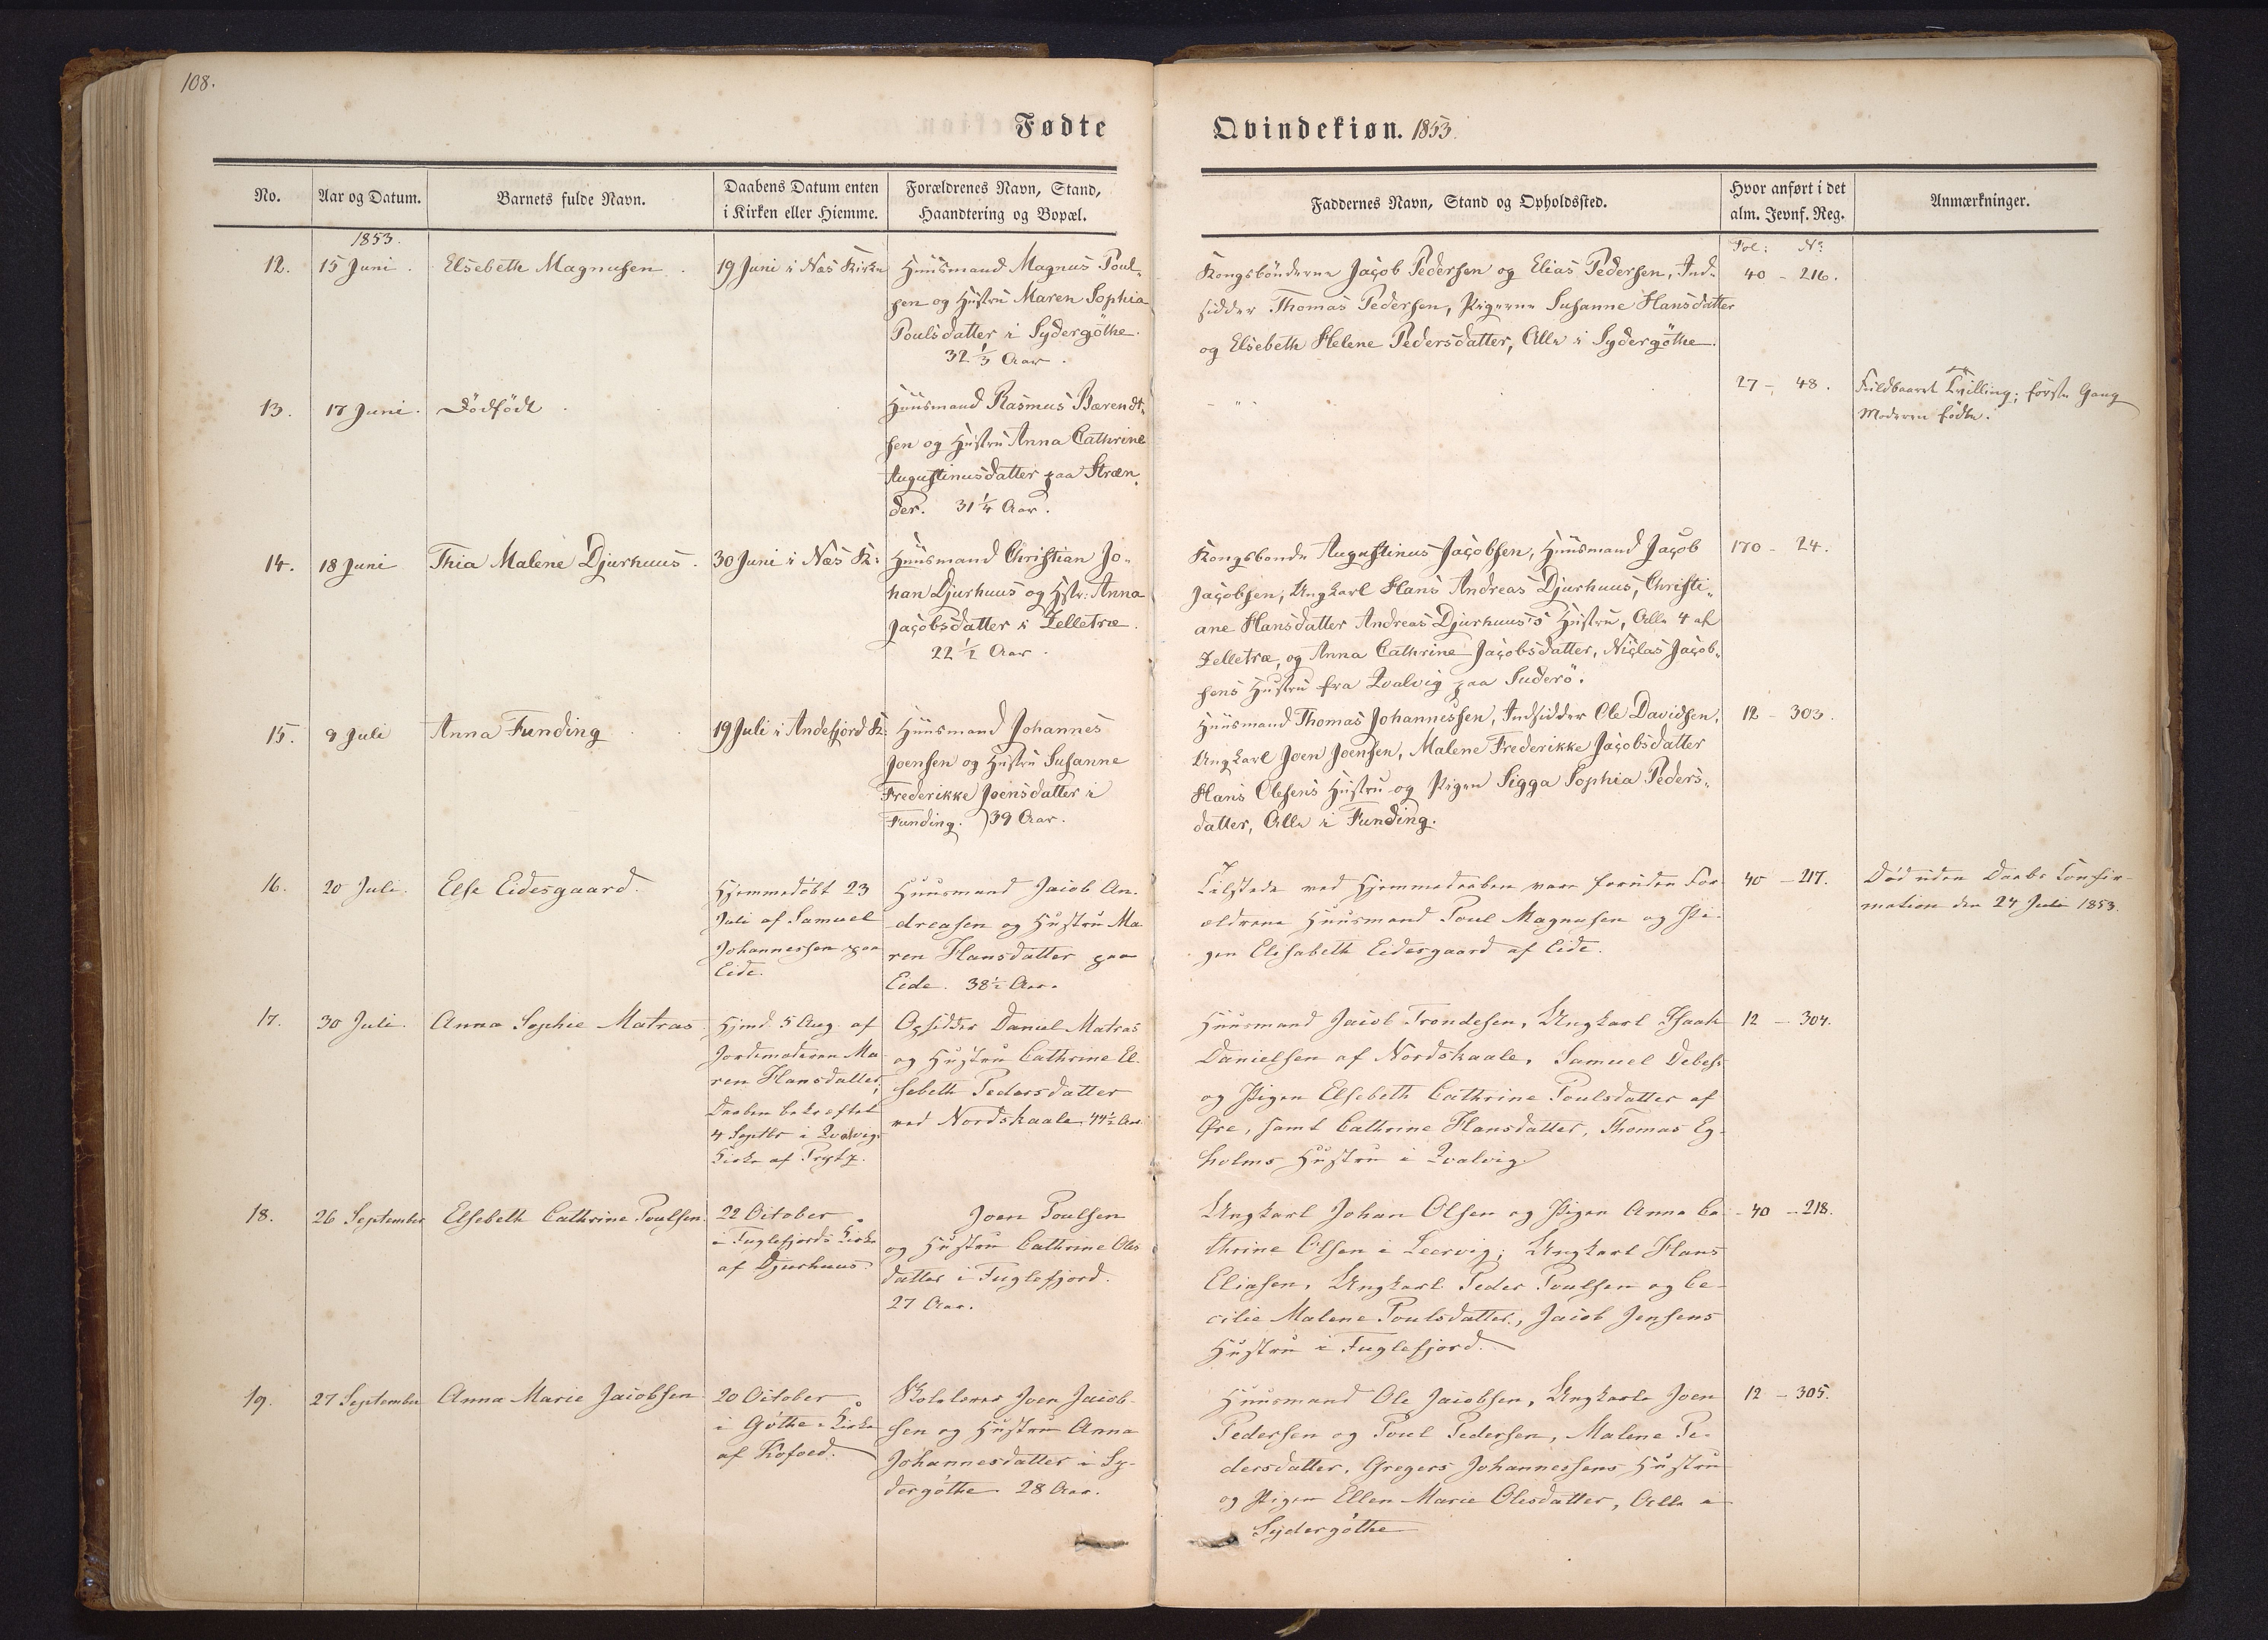 108.
Fødte
Qvindekiøn. 1853.
No.
Aar og Datum.
Barnets fulde Navn.
Daabens Datum enten
i Kirken eller Hiemme.
Forældrenes Navn, Stand,
Haandtering og Bopæl.
Faddernes Navn, Stand og Opholdssted.
Hvor anført i det
alm. Jevnf. Reg.
Anmærkninger.
1853.
Fol: No
12.
15 Juni.
Elsebeth Magnusen.
19 Juni i Næs Kirke
Huusmand Magnus Poul-
sen og Hustru Maren Sophia
Poulsdatter i Sydergöthe.
32 1/3 Aar.
Kongsbönderne Jacob Pedersen og Elias Pedersen, Ind-
sidder Thomas Pedersen, Pigerne Susanne Hansdatter
og Elsebeth Helene Pedersdatter, Alle i Sydergöthe.
40 - 216.
13.
17 Juni.
Dödfödt.
Huusmand Rasmus Bærendt-
sen og Hustru Anna Cathrine
Augustinusdatter paa Stræn-
der. 31 1/4 Aar.
- " -
27 - 48.
Fuldbaaret Tvilling; förste Gang
Moderen födte.
14.
18 Juni
Thia Malene Djurhuus.
30 Juni i Næs K:
Huusmand Christian Jo-
han Djurhuus og Hstr: Anna
Jacobsdatter i Zelletræ.
22 1/2 Aar.
Kongsbonde Augustinus Jacobsen, Huusmand Jacob
Jacobsen, Ungkarl Hans Andreas Djurhuus, Christi-
ane Hansdatter Andreas Djurhuus's Hustru, Alle 4 af
Zelletræ, og Anna Cathrine Jacobsdatter, Niclas Jacob-
sens Hustru fra Qvalvig paa Suderö.
170 - 24.
15.
9 Juli
Anna Funding
19 Juli i Andefjord K:
Huusmand Johannes
Joensen og Hustru Susanne
Frederikke Joensdatter i
Funding. 39 Aar.
Huusmand Thomas Johannessen, Indsidder Ole Davidsen,
Ungkarl Joen Joensen, Malene Frederikke Jacobsdatter
Hans Olesens Hustru og Pigen Sigga Sophia Peders-
datter, Alle i Funding.
12 - 303.
16.
20 Juli.
Else Eidesgaard.
Hjemmedöbt 23
Juli af Samuel
Johannessen paa
Eide.
Huusmand Jacob An-
dreasen og Hustru Ma-
ren Hansdatter paa
Eide. 38 1/2 Aar.
Tilstede ved Hjemmedaaben vare foruden For-
ældrene Huusmand Poul Magnusen og Pi-
gen Elisabeth Eidesgaard af Eide.
40 - 217.
Död uden Daabs Confir-
mation den 24 Juli 1853.
17.
30 Juli.
Anna Sophie Matras
Hjmd. 5 Aug. af
Jordemoderen Ma-
ren Hansdatter,
Daaben bekræftet
4 Septbr i Qvalvig
Kirke af
Opsidder Daniel Matras
og Hustru Cathrine El-
sebeth Pedersdatter
ved Nordskaale 44 1/2 Aar.
Huusmand Jacob Trondesen, Ungkarl Isaak
Danielsen af Nordskaale, Samuel Debess
og Pigen Elsebeth Cathrine Poulsdatter af
Øre, samt Cathrine Hansdatter, Thomas Eg-
holms Hustru i Qvalvig
12 - 304.
18.
26 September
Elsebeth Cathrine Poulsen.
22 October
i Fuglefjords Kirke
af Djurhuus
Joen Poulsen
og Hustru Cathrine Ols-
datter i Fuglefjord.
27 Aar.
Ungkarl Johan Olsen og Pigen Anna Ca-
thrine Olsen i Leervig; Ungkarl Hans
Eliasen, Ungkarl Peder Poulsen og Ce-
cilie Malene Poulsdatter, Jacob Jensens
Hustru i Fuglefjord.
40 - 218.
19.
27 September
Anna Marie Jacobsen
20 October
i Göthe Kirke
af Kofoed.
Skolelærer Joen Jacob-
sen og Hustru Anna
Johannesdatter i Sy-
dergöthe 28 Aar.
Huusmand Ole Jacobsen, Ungkarle Joen
Pedersen og Poul Pedersen, Malene Pe-
dersdatter, Gregers Johannessens Hustru
og Pigen Ellen Marie Olesdatter, Alle i
Sydergöthe
12 - 305.